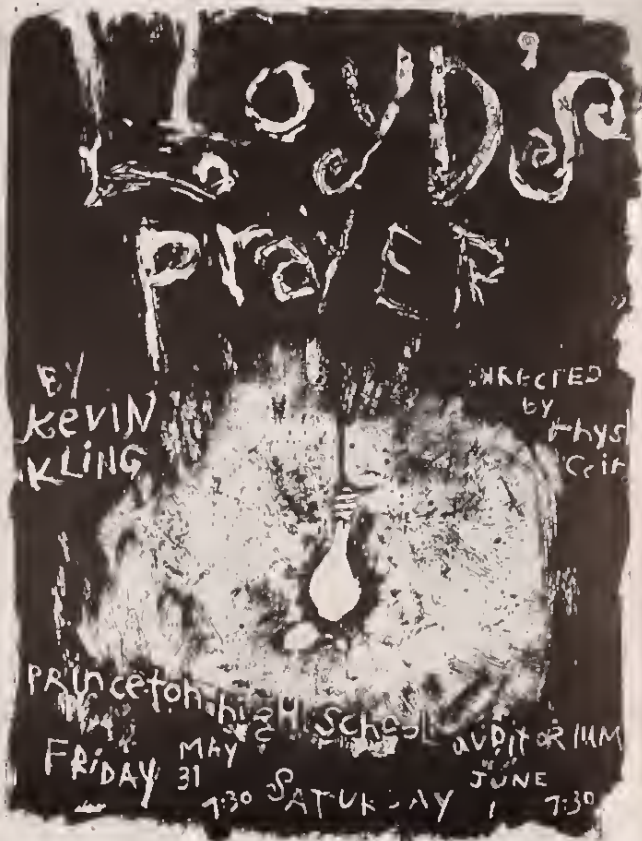 LLOYD'S
PrayER
BY
KEVIN
KLING
DIRECTED
by
rhys
PRinceton higH School auDitORIUM
FRIDAY MAY 31 7:30 SATURDAY JUNE 1 7:30